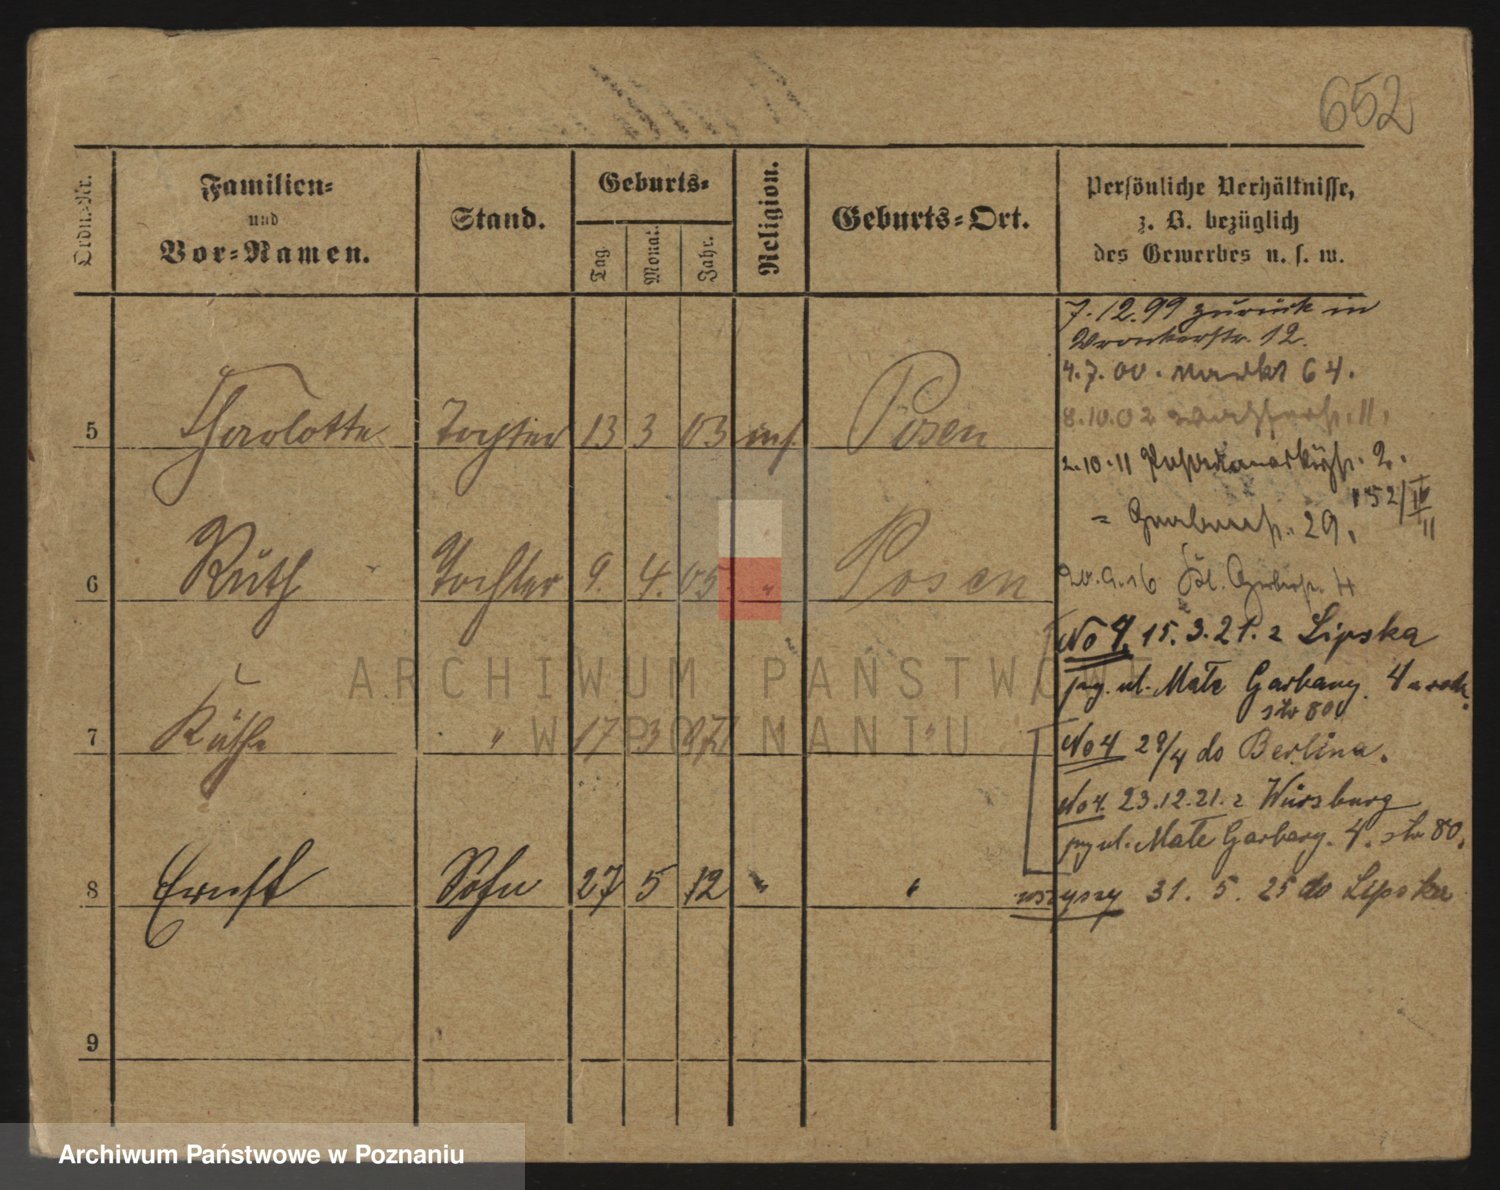 652
Ordn.-Nr.
Familien-
und
Vor-Namen.
Stand.
Geburts-
Tag.
Monat.
Jahr.
Religion.
Geburts-Ort.
Persönliche Verhältnisse,
z. B. bezüglich
des Gewerbes u. s. w.
7.12.99 zurück in
Wronkerstr. 12.
4.7.00. Markt 64.
8.10.02 11.
5 Charlotte Tochter 13 3 03 Posen
2.10.11 2.
" 29. 152/IV
II
6 Ruth Tochter 9. 4. 05. " Posen
20.9.16 4
No 4. 15.3.21. z Lipska
ul. Małe Garbary 4
str 80
7 Käthe " 17 3 "
No 4 28/4 do Berlina.
No 4. 23.12.21. z Würzburg
ul. Małe Garbary. 4. str 80.
8 Ernst Sohn 27 5 12 " "
wszyscy 31. 5. 25 do Lipska
9
ARCHIWUM PAŃSTWOWE
W POZNANIU
Archiwum Państwowe w Poznaniu